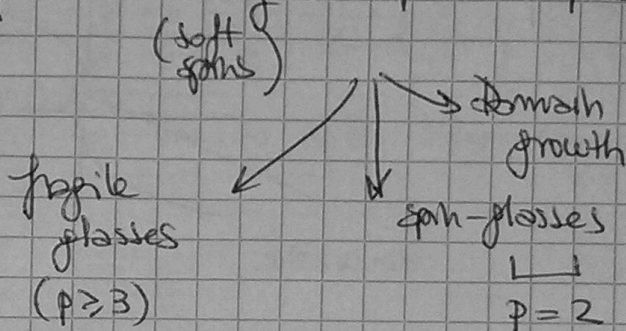 (soft
spins)
Domain
growth
fragile
glasses
spin-glasses
(p ≥ 3)
p = 2